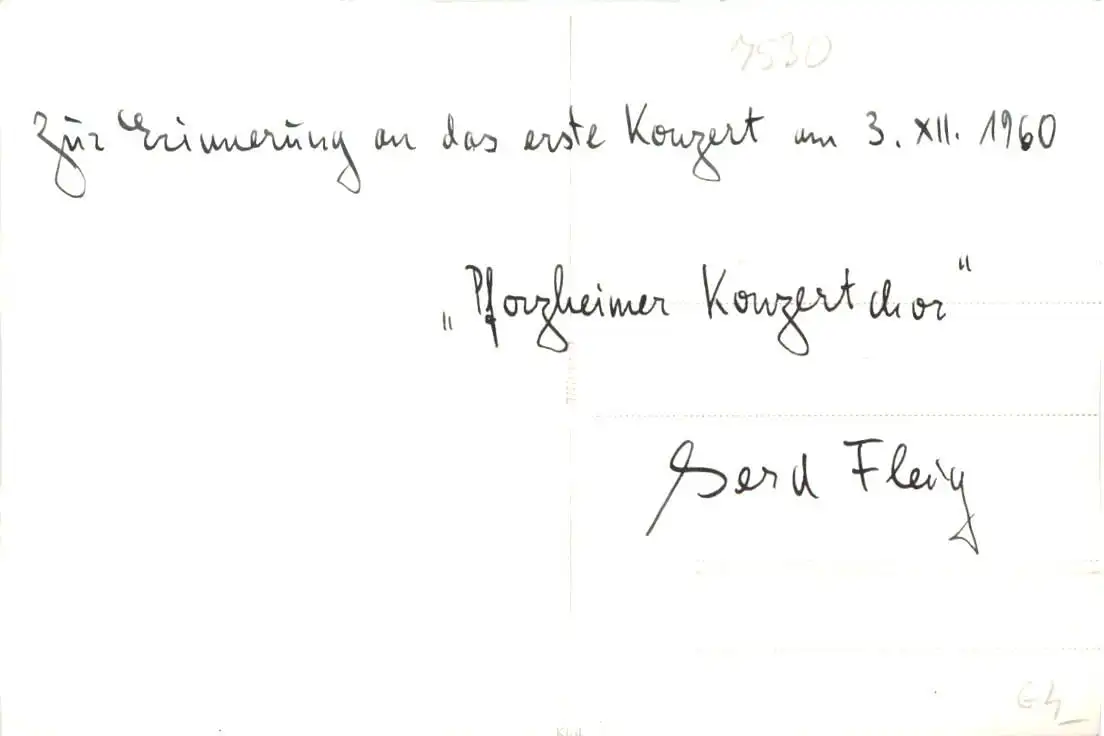 7530
Zur Erinnerung an das erste Konzert am 3. XII. 1960
„Pforzheimer Konzertchor"
Gerd Fleig